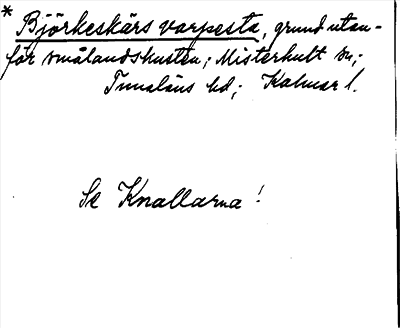 * Björkeskärs varpesta, grund utan-
för smålandskusten; Misterhult sn;
Tunaläns hd; Kalmar l.
Se Knallarna!